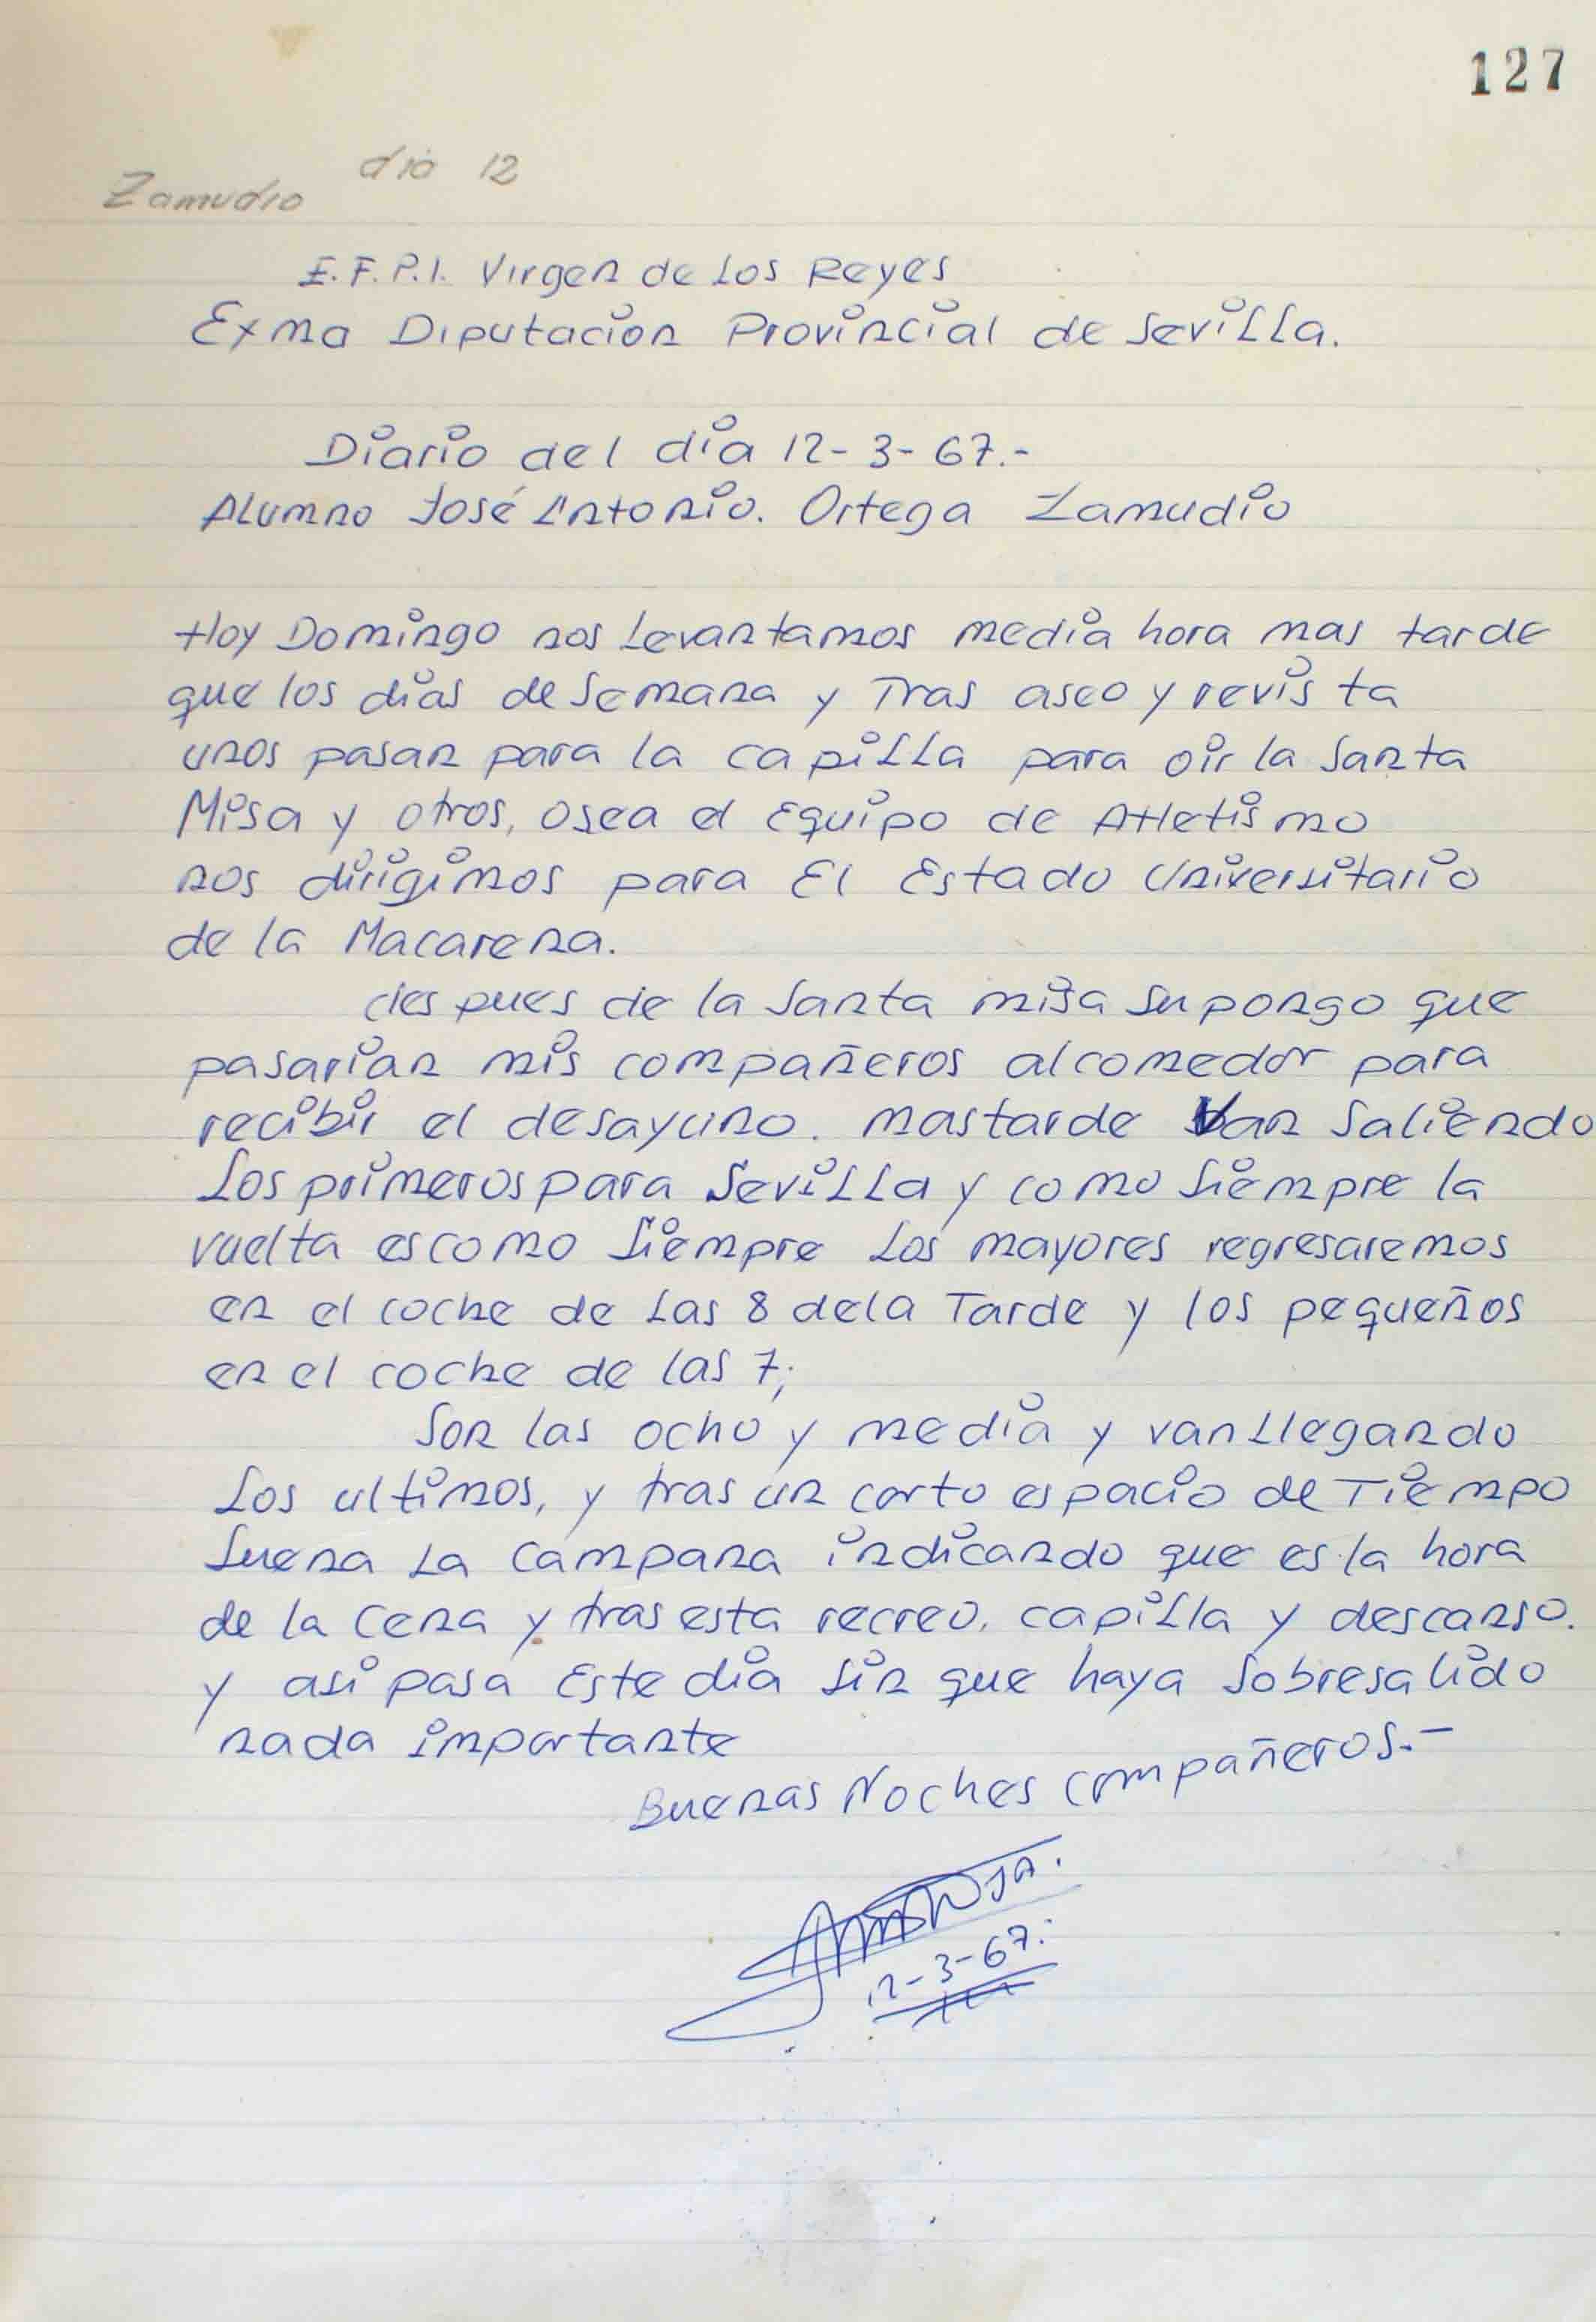 127
dia 12
Zamudio
E.F.P.I. Virgen de Los Reyes
Exma Diputacion Provincial de Sevilla.
Diario del dia 12-3-67.-
Alumno José Antonio. Ortega Zamudio
Hoy Domingo nos Levantamos media hora mas tarde
que los dias de Semana y Tras aseo y revista
unos pasan para la capilla para oir la Santa
Misa y otros, osea el Equipo de Atletismo
nos dirigimos para El Estado Universitario
de la Macarena.
des pues de la Santa misa supongo que
pasarian mis compañeros al comedor para
recibir el desayuno. mastarde Van Saliendo
Los primeros para Sevilla y como Siempre la
vuelta es como Siempre Los mayores regresaremos
en el coche de Las 8 dela Tarde y los pequeños
en el coche de las 7;
Son las ocho y media y van llegando
Los ultimos, y tras un corto espacio de Tiempo
Suena La Campana indicando que es la hora
de la Cena y tras esta recreo, capilla y descanso.
y asi pasa Este dia sin que haya Sobresalido
nada importante
Buenas Noches compañeros.-
12-3-67.